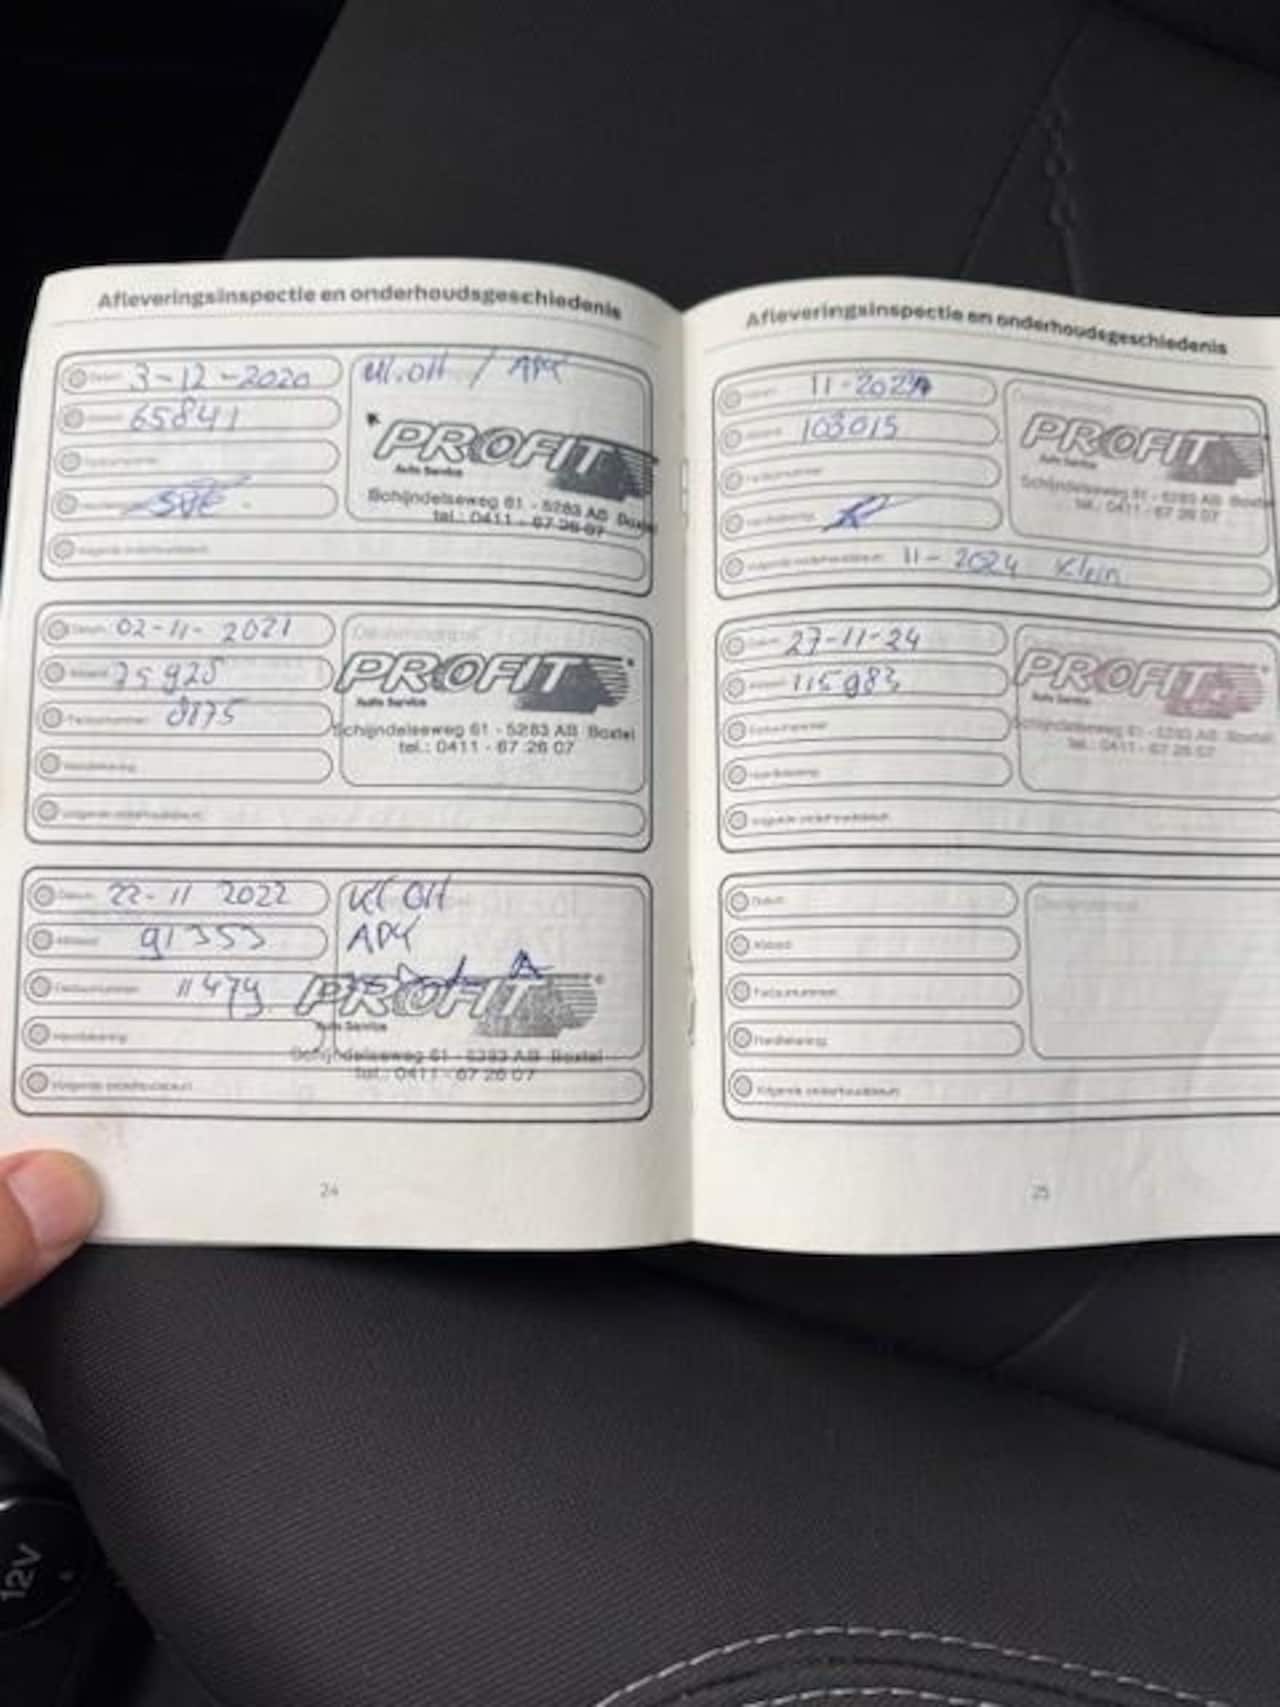 Afleveringsinspectie en onderhoudsgeschiedenis
Datum 3-12-2020
65841
Kl.OH / APK
PROFIT
Auto Service
Schijndelseweg 61 - 5283 AB Boxtel
tel.: 0411 - 67 26 07
Volgende onderhoudsbeurt:
Datum: 02-11-2021
75925
Factuurnummer: 8175
Handtekening:
Volgende onderhoudsbeurt:
PROFIT
Auto Service
Schijndelseweg 61 - 5283 AB Boxtel
tel.: 0411 - 67 26 07
Datum: 22-11 2022
91353
Factuurnummer: 11479
Handtekening:
Volgende onderhoudsbeurt:
Kl OH
APK
PROFIT
Auto Service
Schijndelseweg 61 - 5283 AB Boxtel
tel.: 0411 - 67 26 07
24
Afleveringsinspectie en onderhoudsgeschiedenis
11-2023
103015
Factuurnummer:
Handtekening:
Volgende onderhoudsbeurt: 11-2024 Klein
PROFIT
Auto Service
Schijndelseweg 61 - 5283 AB Boxtel
tel.: 0411 - 67 26 07
Datum: 27-11-24
115983
Factuurnummer:
Handtekening:
Volgende onderhoudsbeurt:
PROFIT
Auto Service
Schijndelseweg 61 - 5283 AB Boxtel
tel.: 0411 - 67 26 07
Datum:
Factuurnummer:
Handtekening:
Volgende onderhoudsbeurt:
25
12V